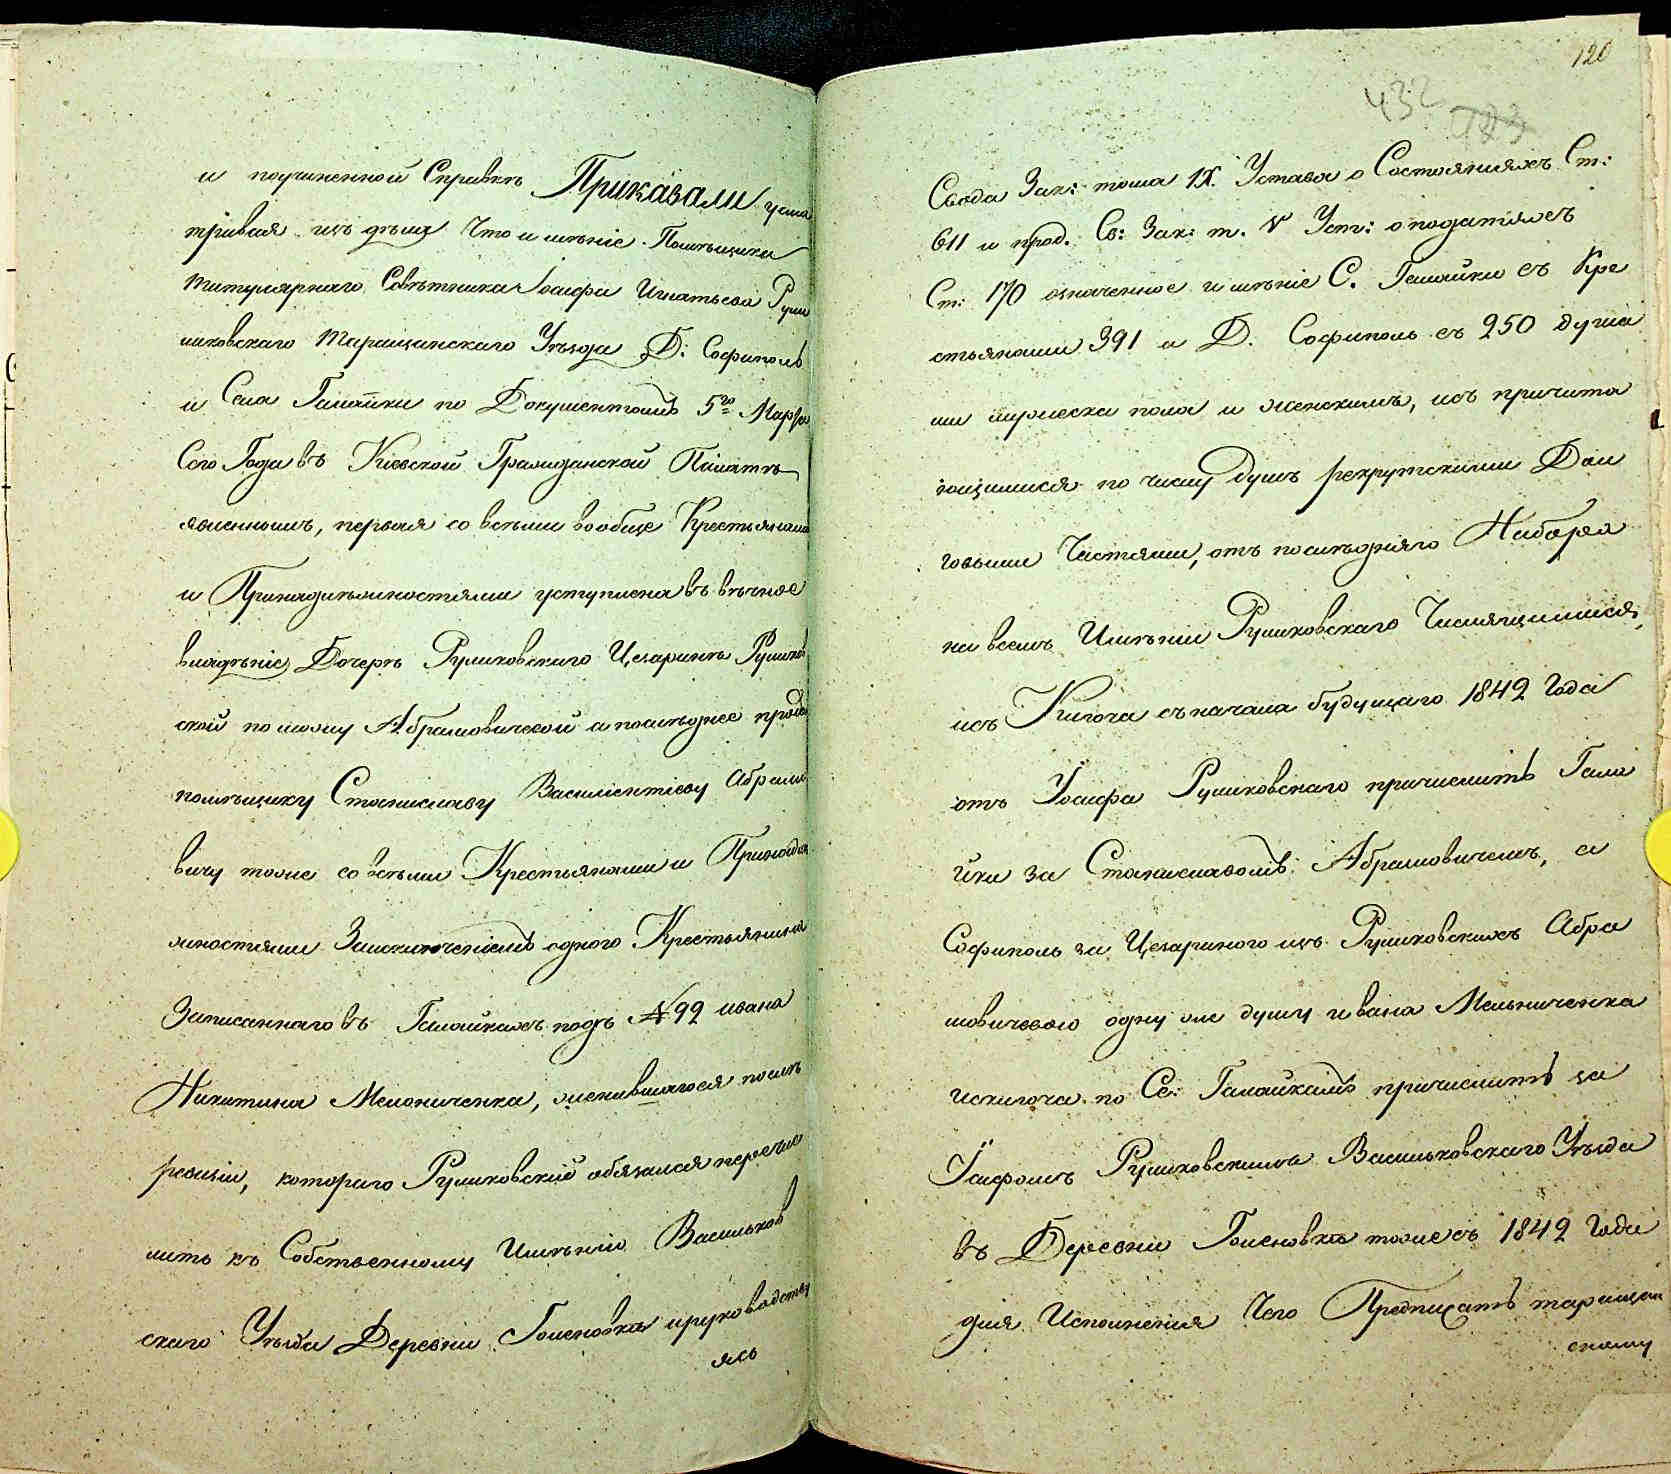 и поучиненной Справкѣ Приказали усма
тривая изъ дѣла Что имѣніе Помѣщика
Титулярнаго Совѣтника Іосифа Игнатьева Рули
ковскаго Таращанскаго Уѣзда Д: Софиполь
и Села Галайки по Документамъ 5го Марта
Сего Года въ Кіевской Гражданской Палатѣ
явленнымъ, первая со всѣми вообще Крестьянами
и Принадлежностями уступлена въ вѣчное
владѣніе Дочерѣ Руликовскаго Цезаринѣ Руликов
ской по мужу Абрамовичевой а послѣднее продано
помѣщику Станиславу Василіентіеву Абрамо
вичу тоже со всѣми Крестьянами и Принадле
жностями Заисключеніемъ одного Крестьянина
Записаннаго въ Галайкахъ подъ № 92 Ивана
Никитина Мельниченка, женившагося послѣ
ревизіи, котораго Руликовскій обязался перечис
лить къ Собственному Имѣнію Васильков
скаго Уѣзда Деревни Голеновкѣ и руководству
ясь
120
432
Свода Зак: тома IX. Устава о Состояніяхъ Ст:
611 и прод. Св: Зак: т. V Уст: о податяхъ
Ст: 170 означенное имѣніе С. Галайки съ Кре
стьянами 391 и Д. Софиполь съ 250 душа
ми мужеска пола и женскимъ, изъ причита
ющимися по числу Душъ рекрутскими Дол
говыми Частями, отъ послѣдняго Набора
на всемъ Имѣніи Руликовскаго Числящимися,
изъ Кигоча съ начала будущаго 1842 Года
отъ Іосифа Руликовскаго причислить Гала
йки за Станиславомъ Абрамовичемъ, а
Софиполь за Цезариною изъ Руликовскихъ Абра
мовичевою одну же душу Ивана Мельниченка
исключа по Се: Галайкамъ причислить за
Іосифомъ Руликовскимъ Васильковскаго Уѣзда
въ Деревни Голеновкѣ тоже съ 1842 Года
для Исполненія Чего Предписать Таращан
скому